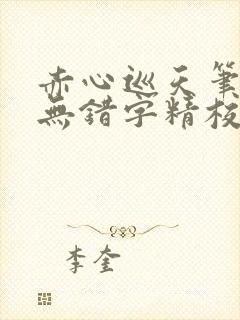 赤心巡天筆
無錯字精校
李奎